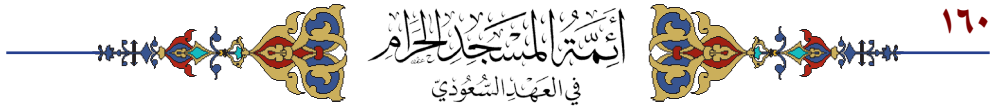 ١٦٠
أَئِمَّةُ المَسْجِدِ الحَرَامِ
فِي العَهْدِ السُّعُودِيّ